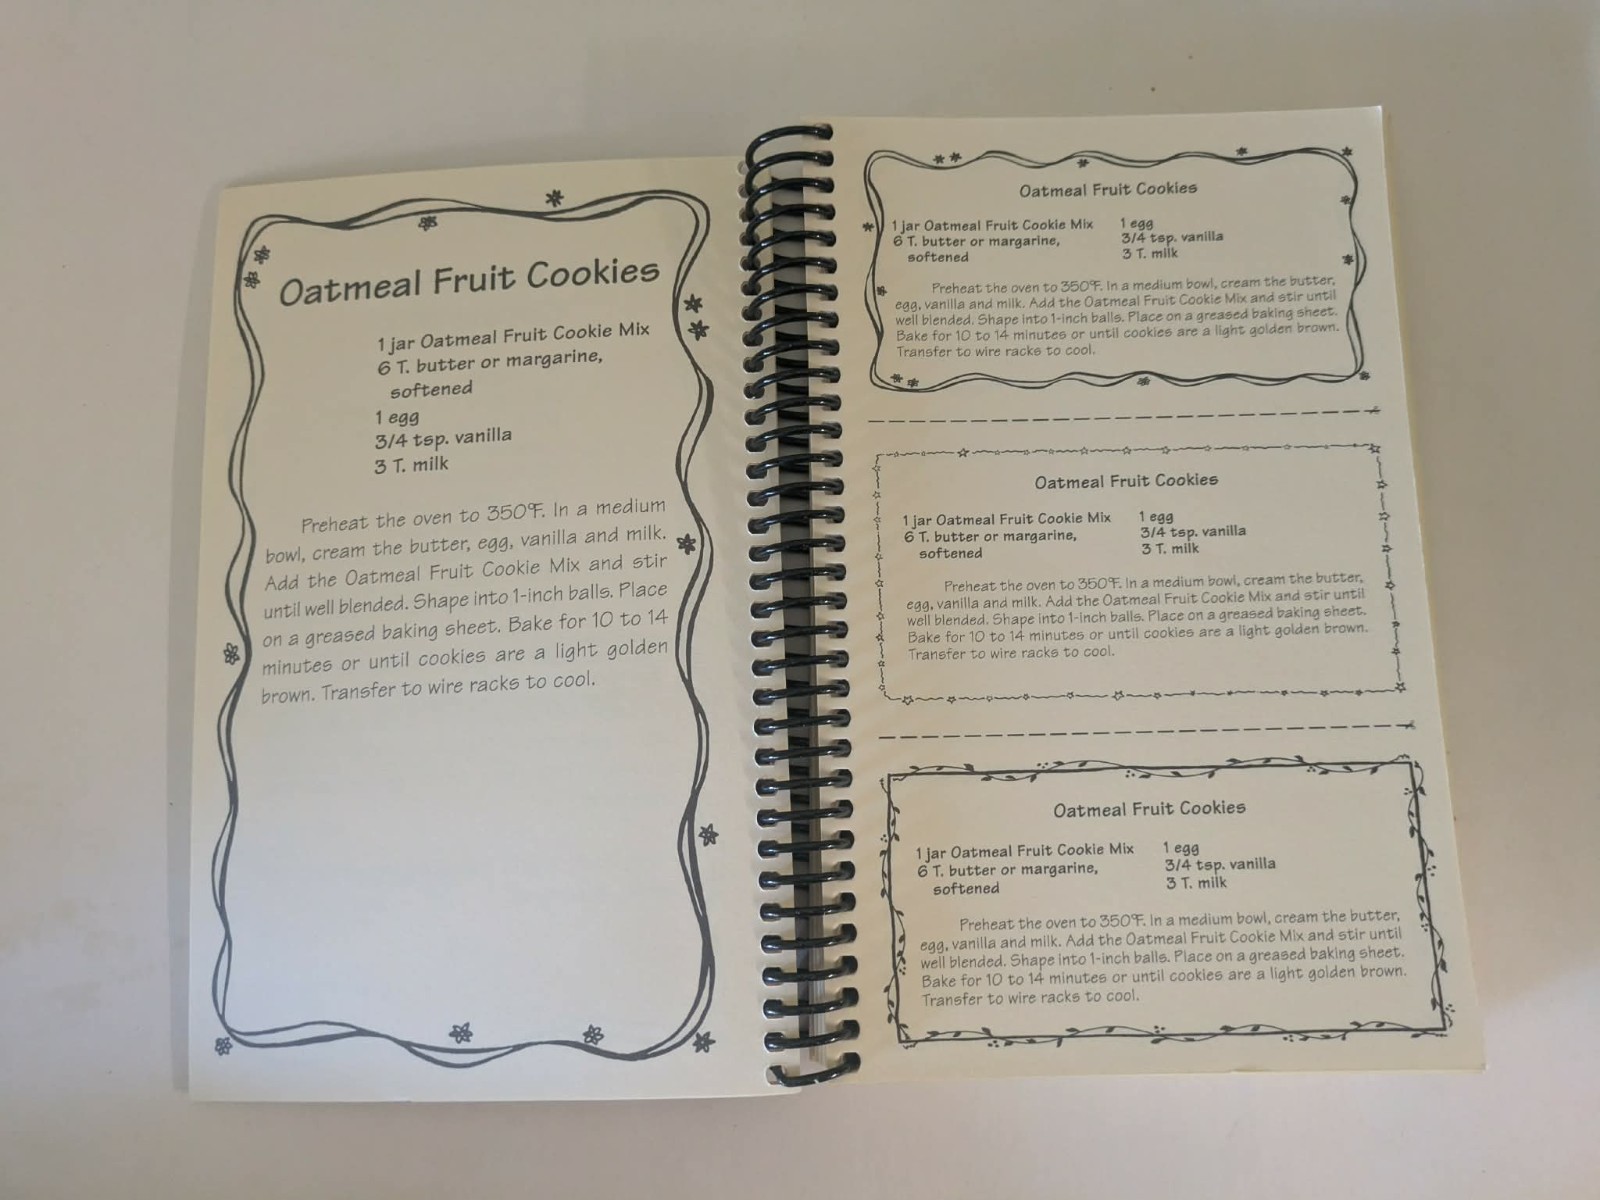 Oatmeal Fruit Cookies
1 jar Oatmeal Fruit Cookie Mix
6 T. butter or margarine,
softened
1 egg
3/4 tsp. vanilla
3 T. milk
Preheat the oven to 350°F. In a medium
bowl, cream the butter, egg, vanilla and milk.
Add the Oatmeal Fruit Cookie Mix and stir
until well blended. Shape into 1-inch balls. Place
on a greased baking sheet. Bake for 10 to 14
minutes or until cookies are a light golden
brown. Transfer to wire racks to cool.
Oatmeal Fruit Cookies
1 jar Oatmeal Fruit Cookie Mix
6 T. butter or margarine,
softened
1 egg
3/4 tsp. vanilla
3 T. milk
Preheat the oven to 350°F. In a medium bowl, cream the butter,
egg, vanilla and milk. Add the Oatmeal Fruit Cookie Mix and stir until
well blended. Shape into 1-inch balls. Place on a greased baking sheet.
Bake for 10 to 14 minutes or until cookies are a light golden brown.
Transfer to wire racks to cool.
Oatmeal Fruit Cookies
1 jar Oatmeal Fruit Cookie Mix
6 T. butter or margarine,
softened
1 egg
3/4 tsp. vanilla
3 T. milk
Preheat the oven to 350°F. In a medium bowl, cream the butter,
egg, vanilla and milk. Add the Oatmeal Fruit Cookie Mix and stir until
well blended. Shape into 1-inch balls. Place on a greased baking sheet.
Bake for 10 to 14 minutes or until cookies are a light golden brown.
Transfer to wire racks to cool.
Oatmeal Fruit Cookies
1 jar Oatmeal Fruit Cookie Mix
6 T. butter or margarine,
softened
1 egg
3/4 tsp. vanilla
3 T. milk
Preheat the oven to 350°F. In a medium bowl, cream the butter,
egg, vanilla and milk. Add the Oatmeal Fruit Cookie Mix and stir until
well blended. Shape into 1-inch balls. Place on a greased baking sheet.
Bake for 10 to 14 minutes or until cookies are a light golden brown.
Transfer to wire racks to cool.